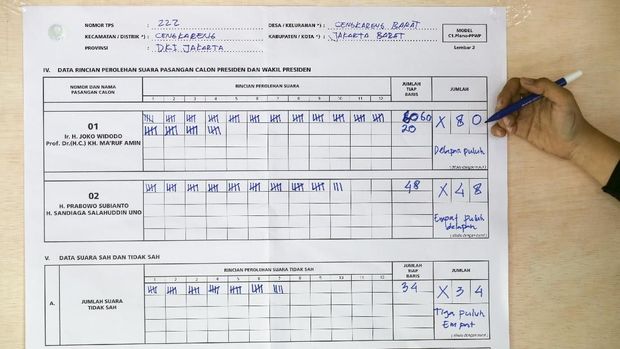 NOMOR TPS : 222 DESA / KELURAHAN *) : CENGKARENG BARAT
KECAMATAN / DISTRIK *) : CENGKARENG KABUPATEN / KOTA *) : JAKARTA BARAT
PROVINSI : D.K.I. JAKARTA
MODEL
C1.Plano-PPWP
Lembar 2
IV. DATA RINCIAN PEROLEHAN SUARA PASANGAN CALON PRESIDEN DAN WAKIL PRESIDEN
NOMOR DAN NAMA
PASANGAN CALON
RINCIAN PEROLEHAN SUARA
1 2 3 4 5 6 7 8 9 10 11 12
JUMLAH
TIAP
BARIS
JUMLAH
01
Ir. H. JOKO WIDODO
Prof. Dr.(H.C.) KH. MA'RUF AMIN
60
20
X 8 0
Delapan puluh
02
H. PRABOWO SUBIANTO
H. SANDIAGA SALAHUDDIN UNO
48
X 4 8
Empat puluh
delapan
V. DATA SUARA SAH DAN TIDAK SAH
RINCIAN PEROLEHAN SUARA TIDAK SAH
1 2 3 4 5 6 7 8 9 10 11 12
JUMLAH
TIAP
BARIS
JUMLAH
A.
JUMLAH SUARA
TIDAK SAH
34
X 3 4
Tiga puluh
Empat